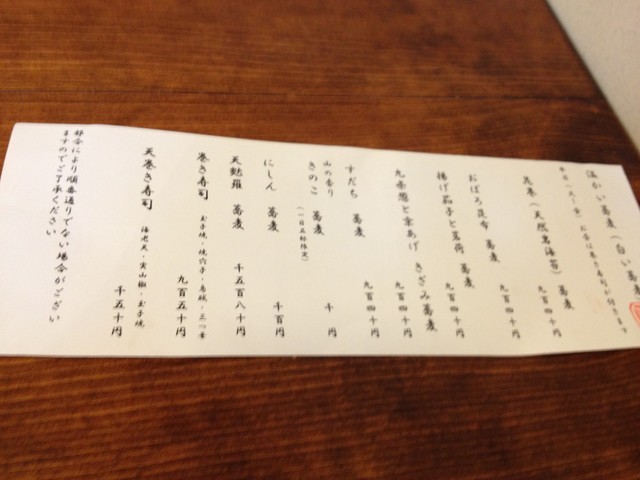 温かい蕎麦（白い蕎麦
花巻（天然岩海苔）蕎麦 九百四十円
おぼろ昆布 蕎麦 九百四十円
揚げ茄子と茗荷 蕎麦 九百四十円
九条葱と京あげ きざみ蕎麦 九百四十円
すだち 蕎麦 九百四十円
山の香り
きのこ 蕎麦 （一日五杯限定） 千 円
にしん 蕎麦 千百円
天麩羅 蕎麦 千五百八十円
巻き寿司 玉子焼・焼穴子・三つ葉 九百五十円
天巻き寿司 海老天・実山椒・玉子焼 千五十円
都合により順番通りでない場合がござい
ますのでご了承ください